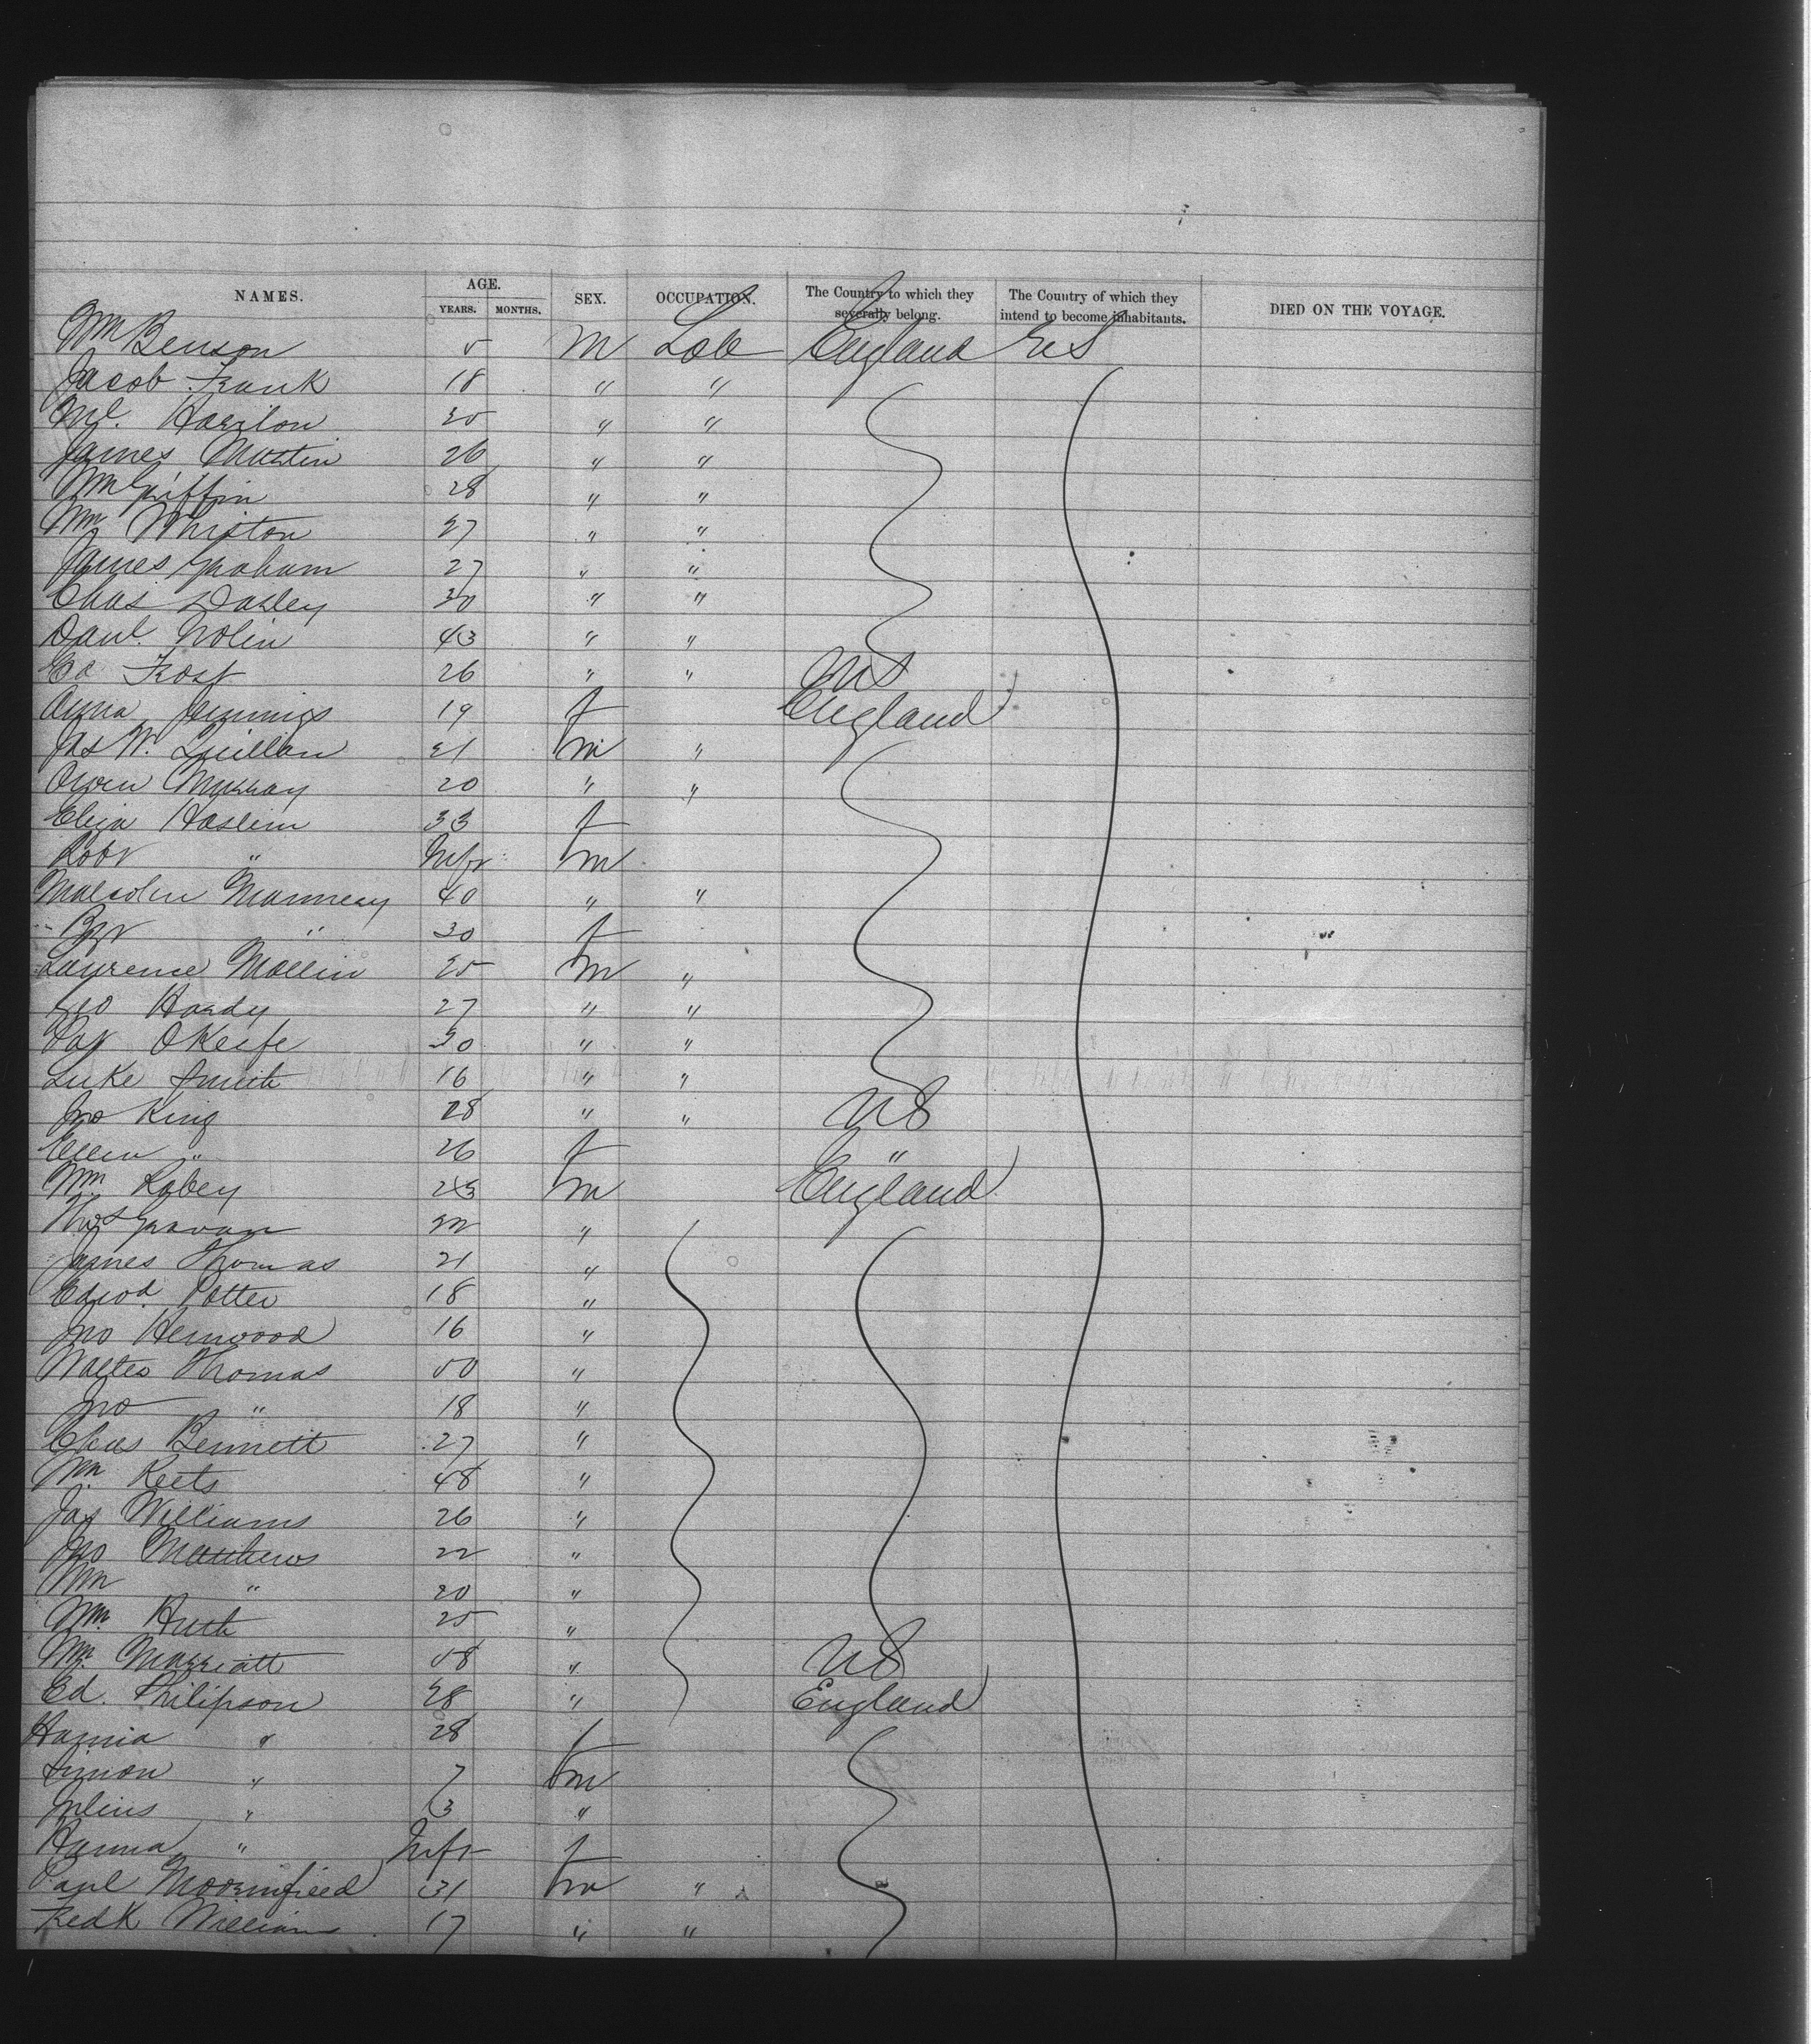 NAMES. AGE. YEARS. MONTHS. SEX. OCCUPATION. The Country to which they severally belong. The Country of which they intend to become inhabitants. DIED ON THE VOYAGE.
Wm Benson 5 M Lab England US
Jacob Frank 18 " "
Ml. Hazilon 25 " "
James Martin 26 " "
Wm Griffin 28 " "
Wm Whiston 27 " "
James Graham 27 " "
Chas Dasley 30 " "
Danl. Nolin 43 " "
Ed Frost 26 " " US
Anna Jennings 19 f England
Jas W. Quillan 21 m "
Owen Murray 20 " "
Eliza Haslim 33 f
Robt " Inft m
Malcolm Manneay 40 " "
" 30 f
Laurence Mallin 25 m "
Geo Hardy 27 " "
Pat OKeefe 30 " "
Luke Smith 16 " "
Jno King 28 " " US
Ellen " 26 f "
Wm Robey 23 m England
Thos Gravan 22 "
James Thomas 21 "
Edwd. Potter 18 "
Jno Henwood 16 "
Walter Thomas 50 "
Jno " 18 "
Chas Bennett 27 "
Wm. Keets 48 "
Jas Williams 26 "
Jno Matthews 22 "
Wm " 20 "
Wm. Huth 25 "
Wm. Marriatt 58 " US
Ed. Philipson 28 " England
Hannia " 28 f
Simon " 7 m
Julius " 3 "
Hanna " Inft f
Paul Moorinfield 31 m "
Fredk William 17 " "